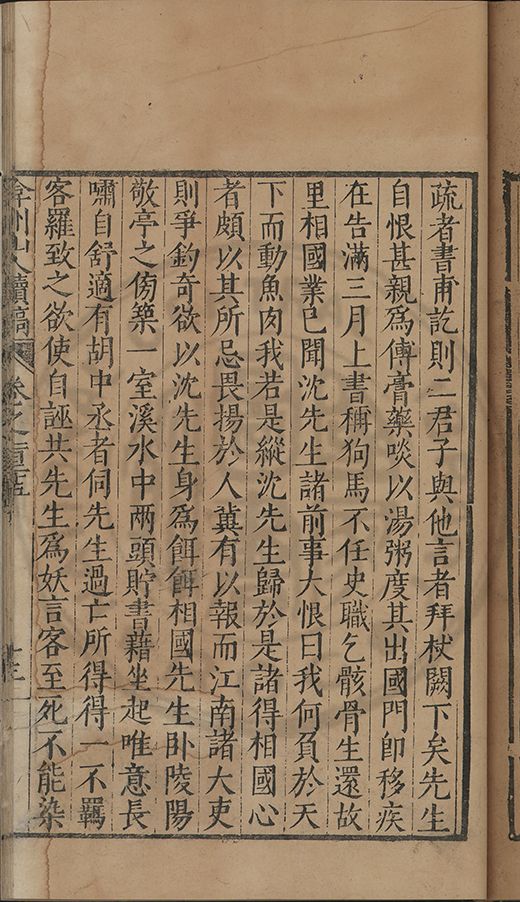 疏者書甫訖則二君子與他言者拜杖闕下矣先生
自恨甚親爲傅膏藥啖以湯粥度其出國門卽移疾
在告滿三月上書稱狗馬不任史職乞骸骨生還故
里相國業已聞沈先生諸前事大恨曰我何負於天
下而動魚肉我若是縱沈先生歸於是諸得相國心
者頗以其所忌畏揚於人冀有以報而江南諸大吏
則爭釣奇欲以沈先生身爲餌餌相國先生卧陵陽
敬亭之傍築一室溪水中两頭貯書藉坐起唯意長
嘯自舒適有胡中丞者伺先生過亡所得得一不羈
客羅致之欲使自誣共先生爲妖言客至死不能染
弇州山人續稿 卷之